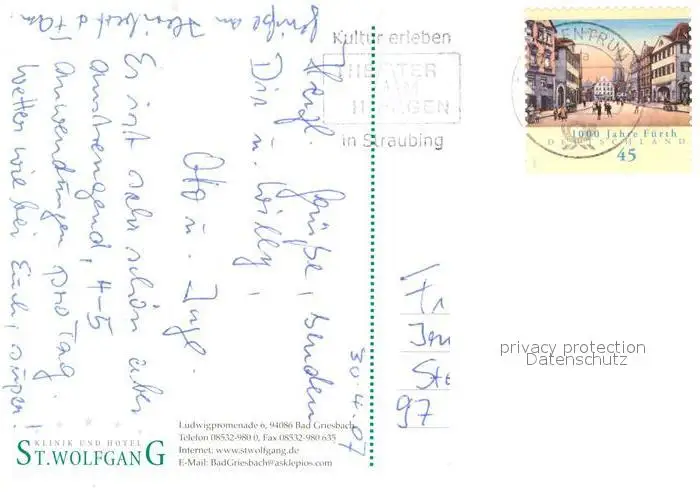 30.4.07
Herzl. Grüße, senden
Dir u. Willy,
Otto u. Ingl.
Es ist sehr schön aber
anstrengend, 4-5
Anwendungen pro Tag.
Wetter wie bei Euch, super!
Grüße an Heribert u. Fam.
Kultur erleben
THEATER
AM
HAGEN
in Straubing
1000 Jahre Fürth
DEUTSCHLAND
45
97
privacy protection
Datenschutz
KLINIK UND HOTEL
ST.WOLFGANG
Ludwigpromenade 6, 94086 Bad Griesbach
Telefon 08532-980 0, Fax 08532-980 635
Internet: www.stwolfgang.de
E-Mail: BadGriesbach@asklepios.com